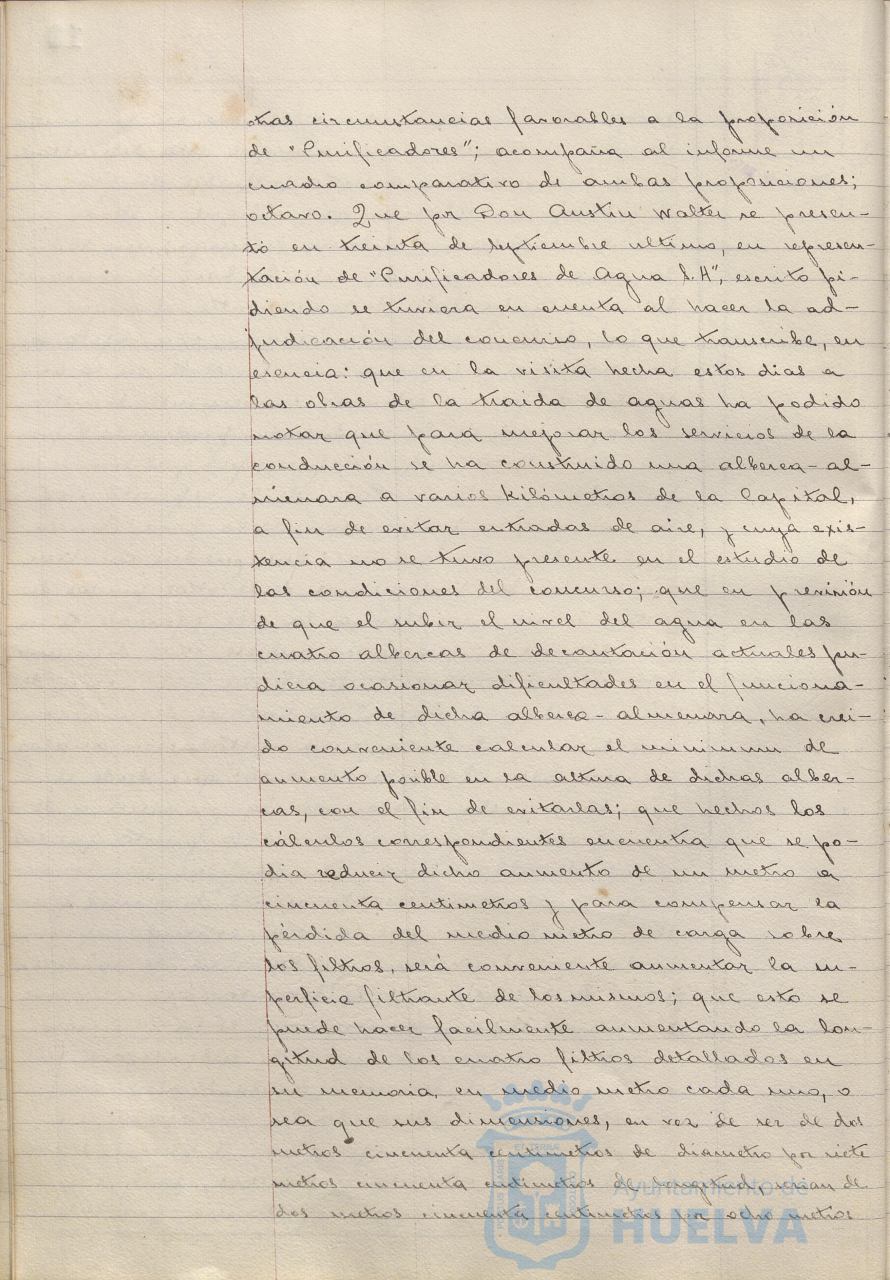 otras circunstancias favorables a la proposición
de "Purificadores"; acompaña al informe un
cuadro comparativo de ambas proposiciones;
octavo. Que por Don Austin Walter se presen-
tó en treinta de septiembre ultimo, en represen-
tación de "Purificadores de Agua S.A", escrito pi-
diendo se tuviera en cuenta al hacer la ad-
judicación del concurso, lo que transcribe, en
esencia: que en la visita hecha estos dias a
las obras de la traida de aguas ha podido
notar que para mejorar los servicios de la
conducción se ha construido una alberca-al-
menara a varios kilómetros de la Capital,
a fin de evitar entradas de aire, y cuya exis-
tencia no se tuvo presente en el estudio de
las condiciones del concurso; que en previsión
de que el subir el nivel del agua en las
cuatro albercas de decantación actuales pu-
diera ocasionar dificultades en el funciona-
miento de dicha alberca-almenara, ha crei-
do conveniente calcular el minimum de
aumento posible en la altura de dichas alber-
cas, con el fin de evitarlas; que hechos los
cálculos correspondientes encuentra que se po-
dia reducir dicho aumento de un metro a
cincuenta centimetros y para compensar la
pérdida del medio metro de carga sobre
los filtros, será conveniente aumentar la su-
perficie filtrante de los mismos; que esto se
puede hacer facilmente aumentando la lon-
gitud de los cuatro filtros detallados en
su memoria, en medio metro cada uno, o
sea que sus dimensiones, en vez de ser de dos
metros cincuenta centimetros de diametro por siete
metros cincuenta centimetros de longitud, serian de
dos metros cincuenta centimetros por ocho metros
Ayuntamiento de
HUELVA